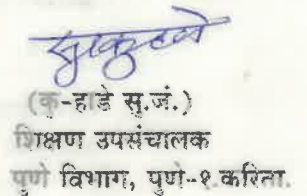 (कु-हाडे सु.जं.)
शिक्षण उपसंचालक
पुणे विभाग, पुणे-१ करिता.